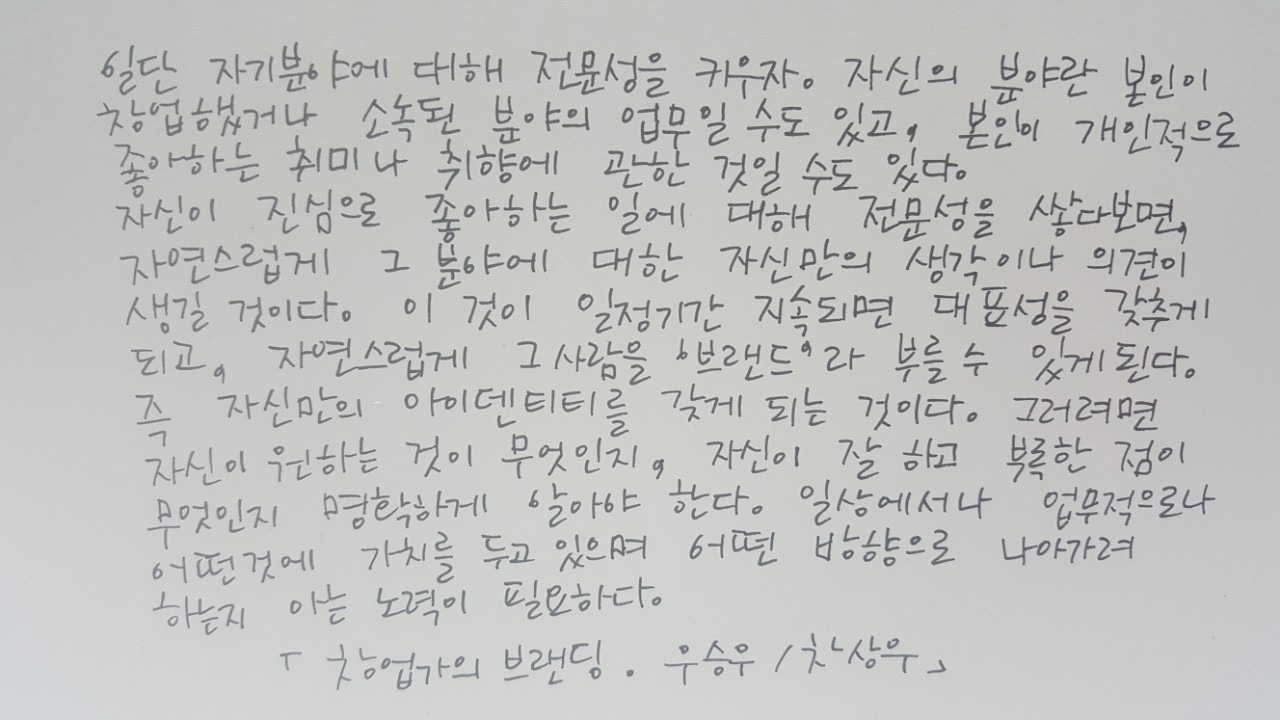 일단 자기분야에 대해 전문성을 키우자. 자신의 분야란 본인이
창업했거나 소속된 분야의 업무일 수도 있고, 본인이 개인적으로
좋아하는 취미나 취향에 관한 것일 수도 있다.
자신이 진심으로 좋아하는 일에 대해 전문성을 쌓다보면,
자연스럽게 그 분야에 대한 자신만의 생각이나 의견이
생길 것이다. 이 것이 일정기간 지속되면 대표성을 갖추게
되고, 자연스럽게 그사람을 '브랜드'라 부를 수 있게된다.
즉 자신만의 아이덴티티를 갖게 되는 것이다. 그러려면
자신이 원하는 것이 무엇인지, 자신이 잘 하고 부족한 점이
무엇인지 명확하게 알아야 한다. 일상에서나 업무적으로나
어떤것에 가치를 두고 있으며 어떤 방향으로 나아가려
하는지 아는 노력이 필요하다.
「창업가의 브랜딩. 우승우/차상우」